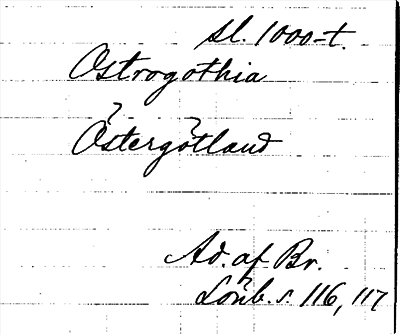 sl. 1000-t.
Ostrogothia
Östergötland
Ad. af Br.
Lönb. s. 116, 117